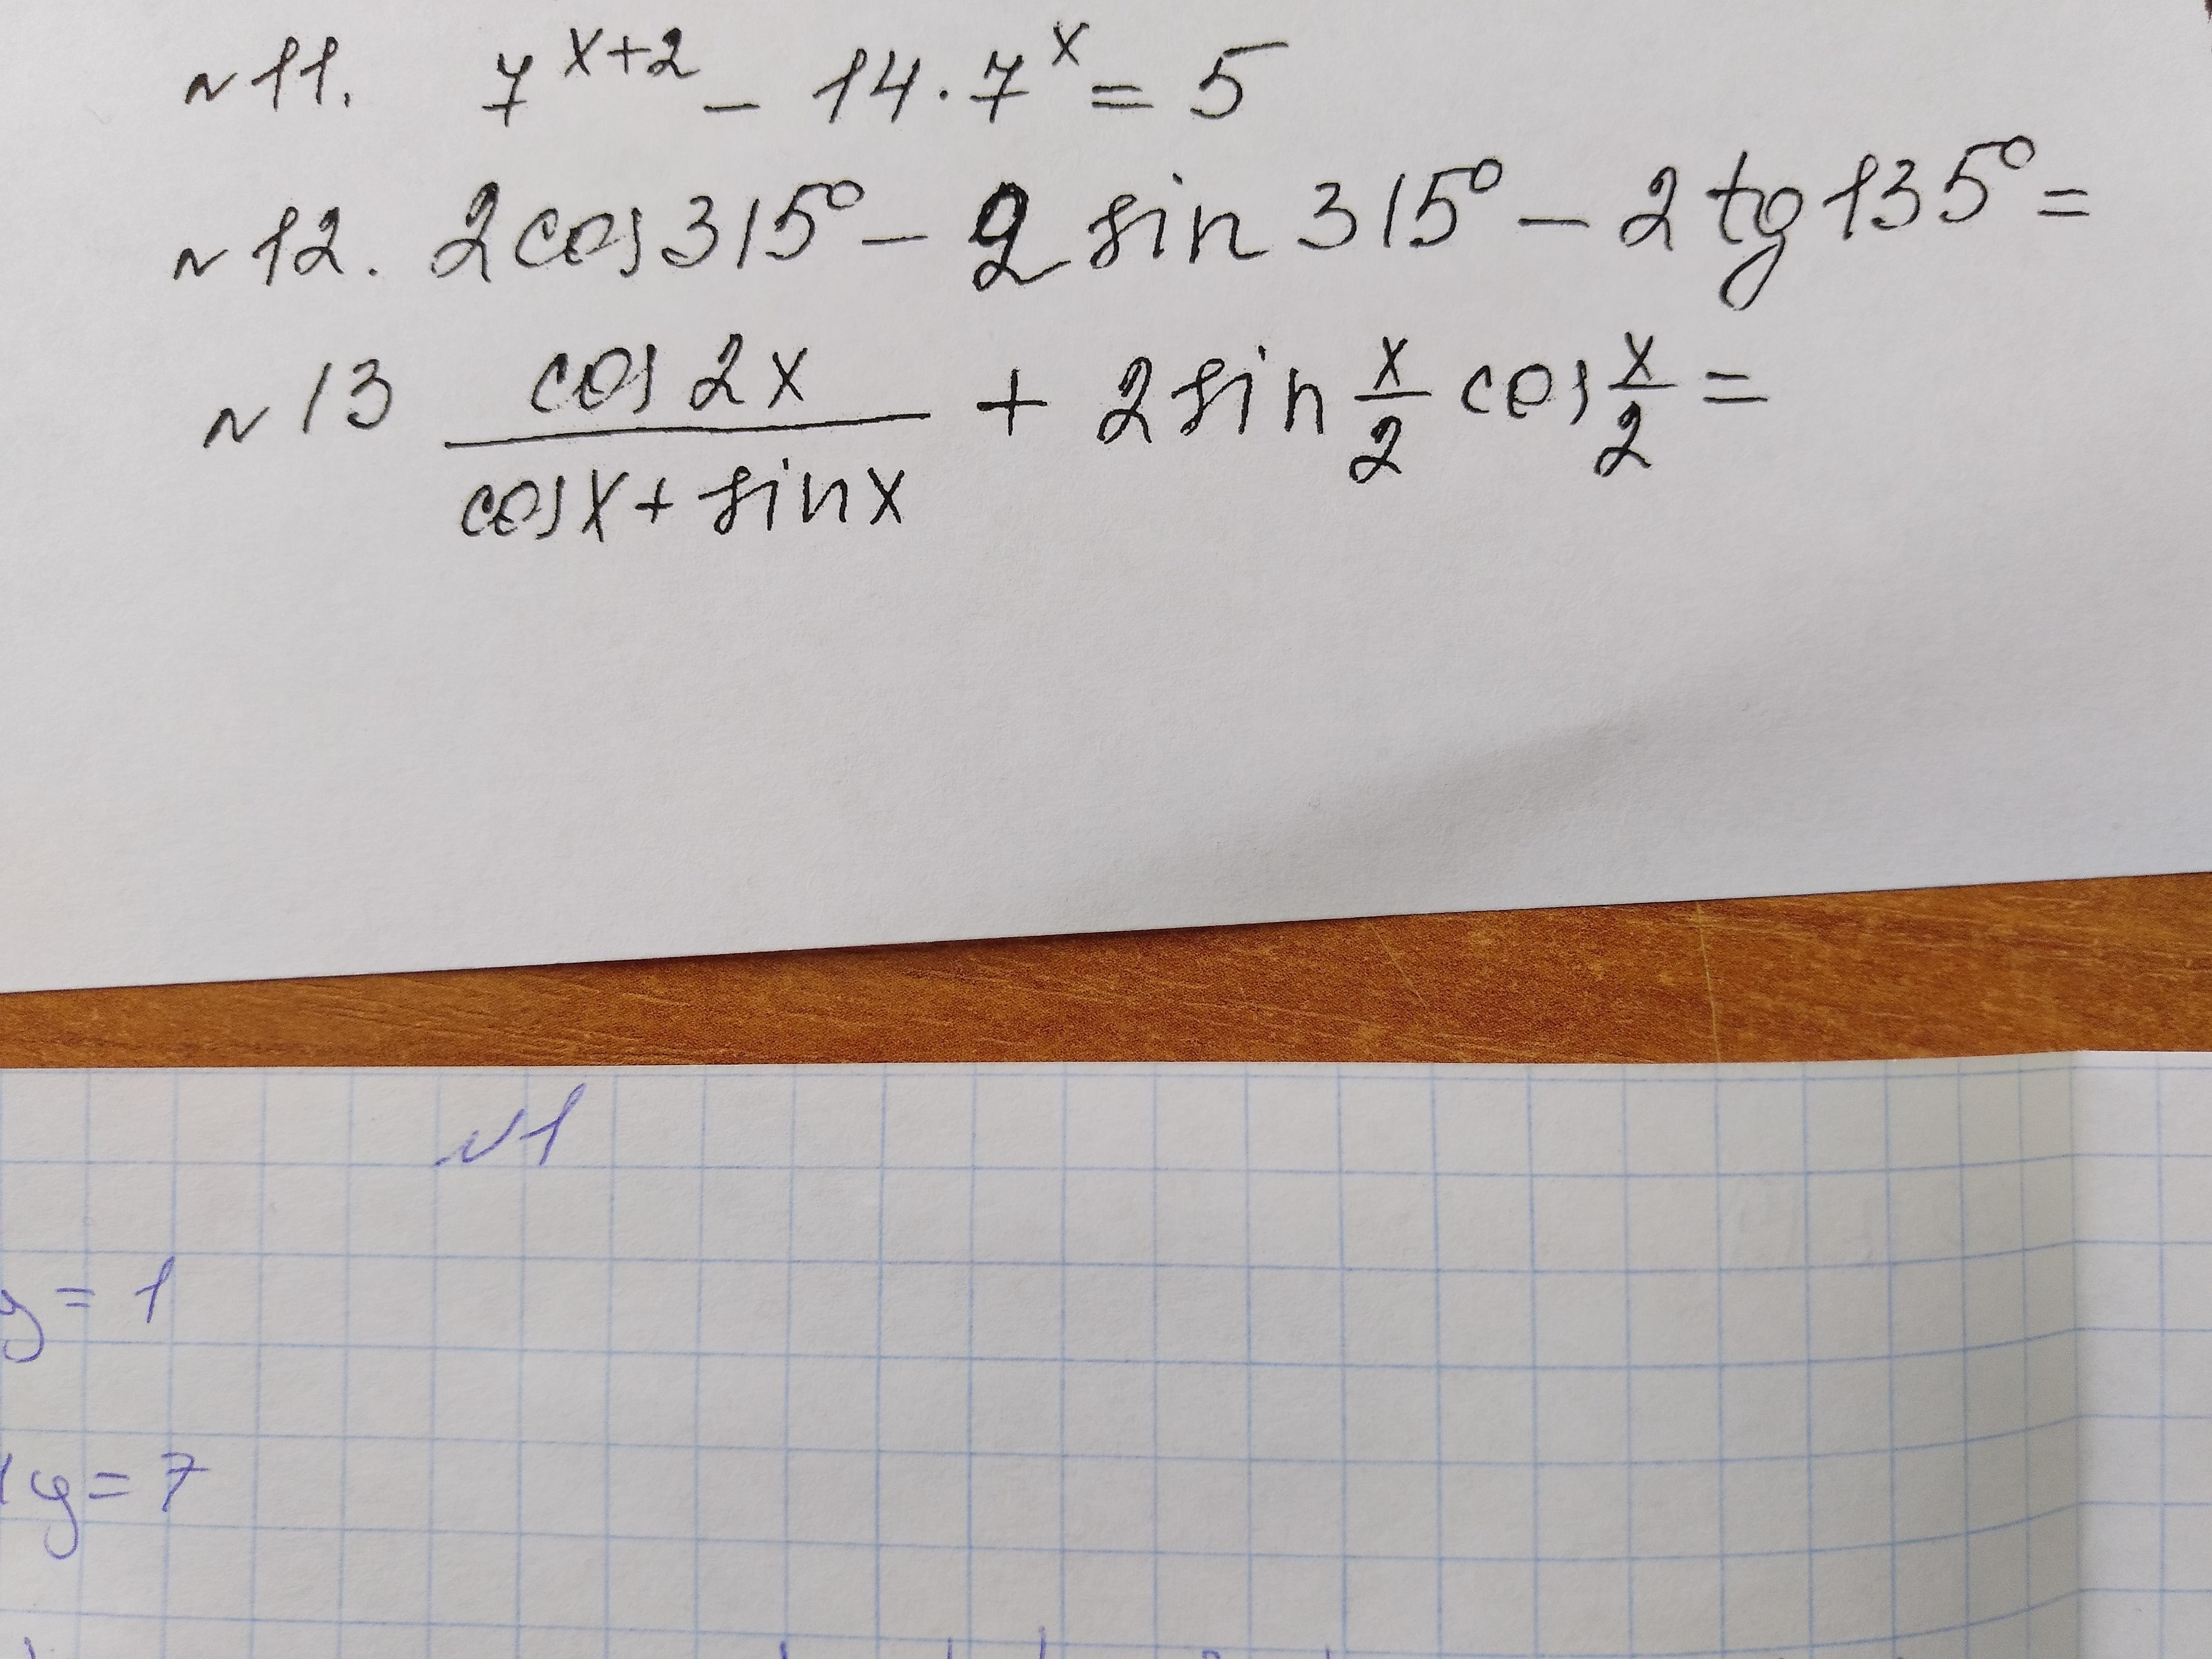 №11. 7^{x+2} - 14·7^x = 5
№12. 2cos315° - 2sin315° - 2tg135° =
№13 \frac{cos2x}{cosx+sinx} + 2sin\frac{x}{2}cos\frac{x}{2} =
№1
y = 1
y = 7